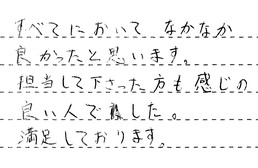 すべてにおいて なかなか
良かったと思います。
担当して下さった方も感じの
良い人でした。
満足しております。